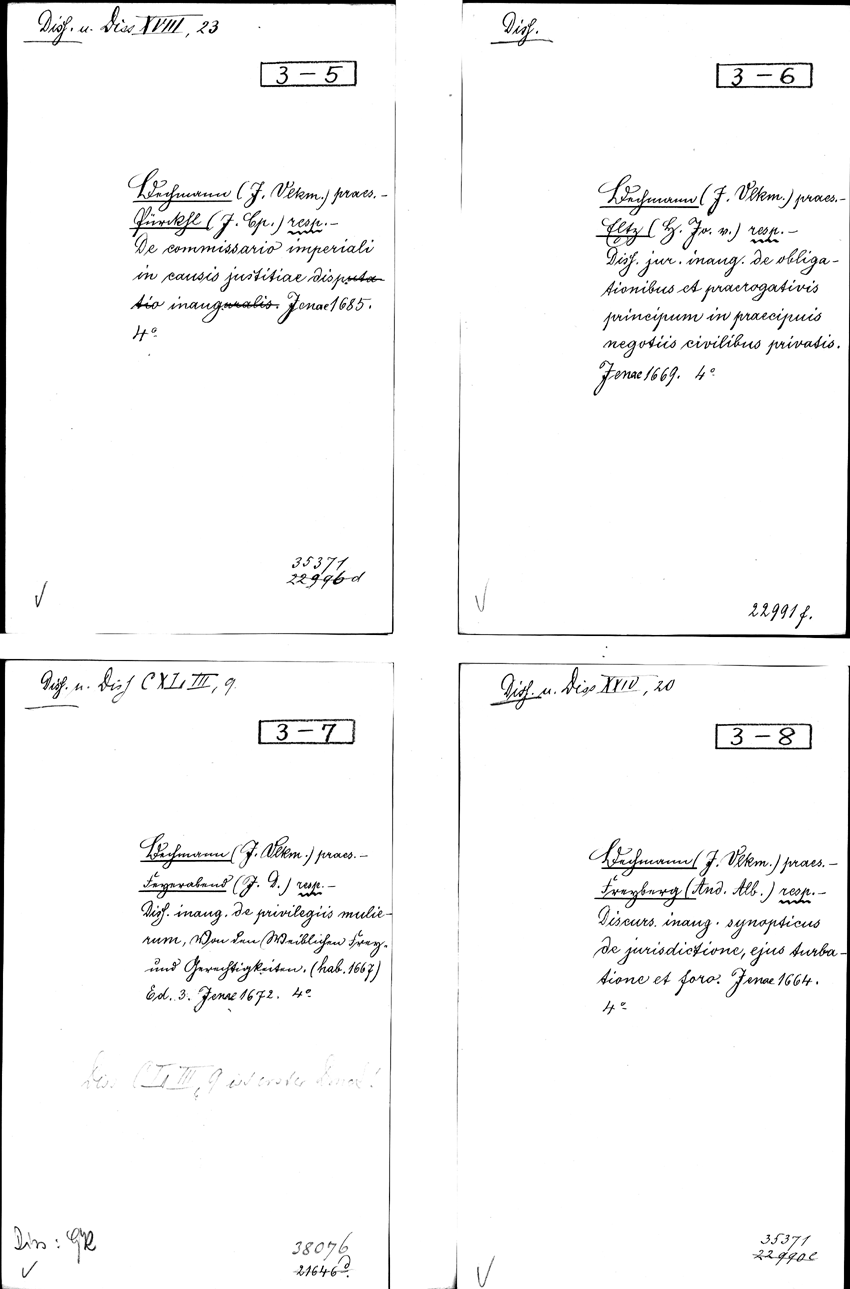 Diss. u. Diss XVIII, 23
3 – 5
Bechmann (J. Vlkm.) praes. –
Pürckhl (J. Cp.) resp. –
De commissario imperiali
in causis justitiae disputa-
tio inauguralis. Jenae 1685.
4°.
35371
22996d
Diss.
3 – 6
Bechmann (J. Vlkm.) praes. –
Eltz (H. Jo. v.) resp. –
Diss. jur. inaug. de obliga-
tionibus et praerogativis
principum in praecipuis
negotiis civilibus privatis.
Jenae 1669. 4°.
22991 f.
Diss. u. Diss CXLIII, 9.
3 – 7
Bechmann (J. Vlkm.) praes. –
Feyerabend (J. D.) resp. –
Diss. inaug. de privilegiis mulie-
rum, Von den Weiblichen Frey-
und Gerechtigkeiten. (hab. 1667)
Ed. 3. Jenae 1672. 4°.
Diss CLIII, 9 ist erster Druck!
Diss : GK
38076
21646d.
Diss. u. Diss XXIV, 20
3 – 8
Bechmann (J. Vlkm.) praes. –
Freyberg (And. Alb.) resp. –
Discurs. inaug. synopticus
de jurisdictione, ejus turba-
tione et foro. Jenae 1664.
4°.
35371
22990c